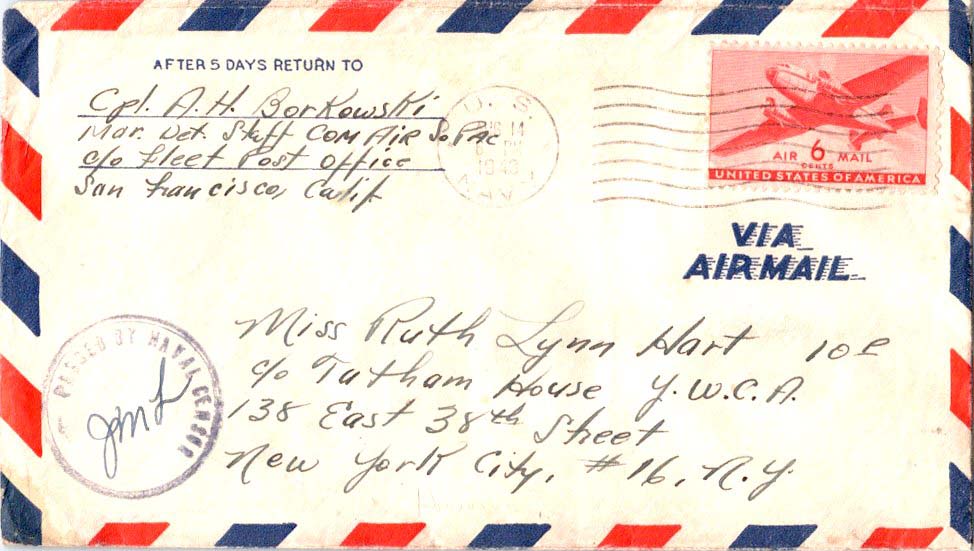 AFTER 5 DAYS RETURN TO
Cpl. A. H. Borkowski
Mar. Det. Staff COM AIR SoPAC
c/o Fleet Post Office
San Francisco, Calif
U. S.
14
1943
NAVY
AIR 6 MAIL
CENTS
UNITED STATES OF AMERICA
VIA
AIR MAIL
Miss Ruth Lynn Hart
c/o Tatham House Y.W.C.A.
138 East 38th Street
New York City, #16, N.Y.
PASSED BY NAVAL CENSOR